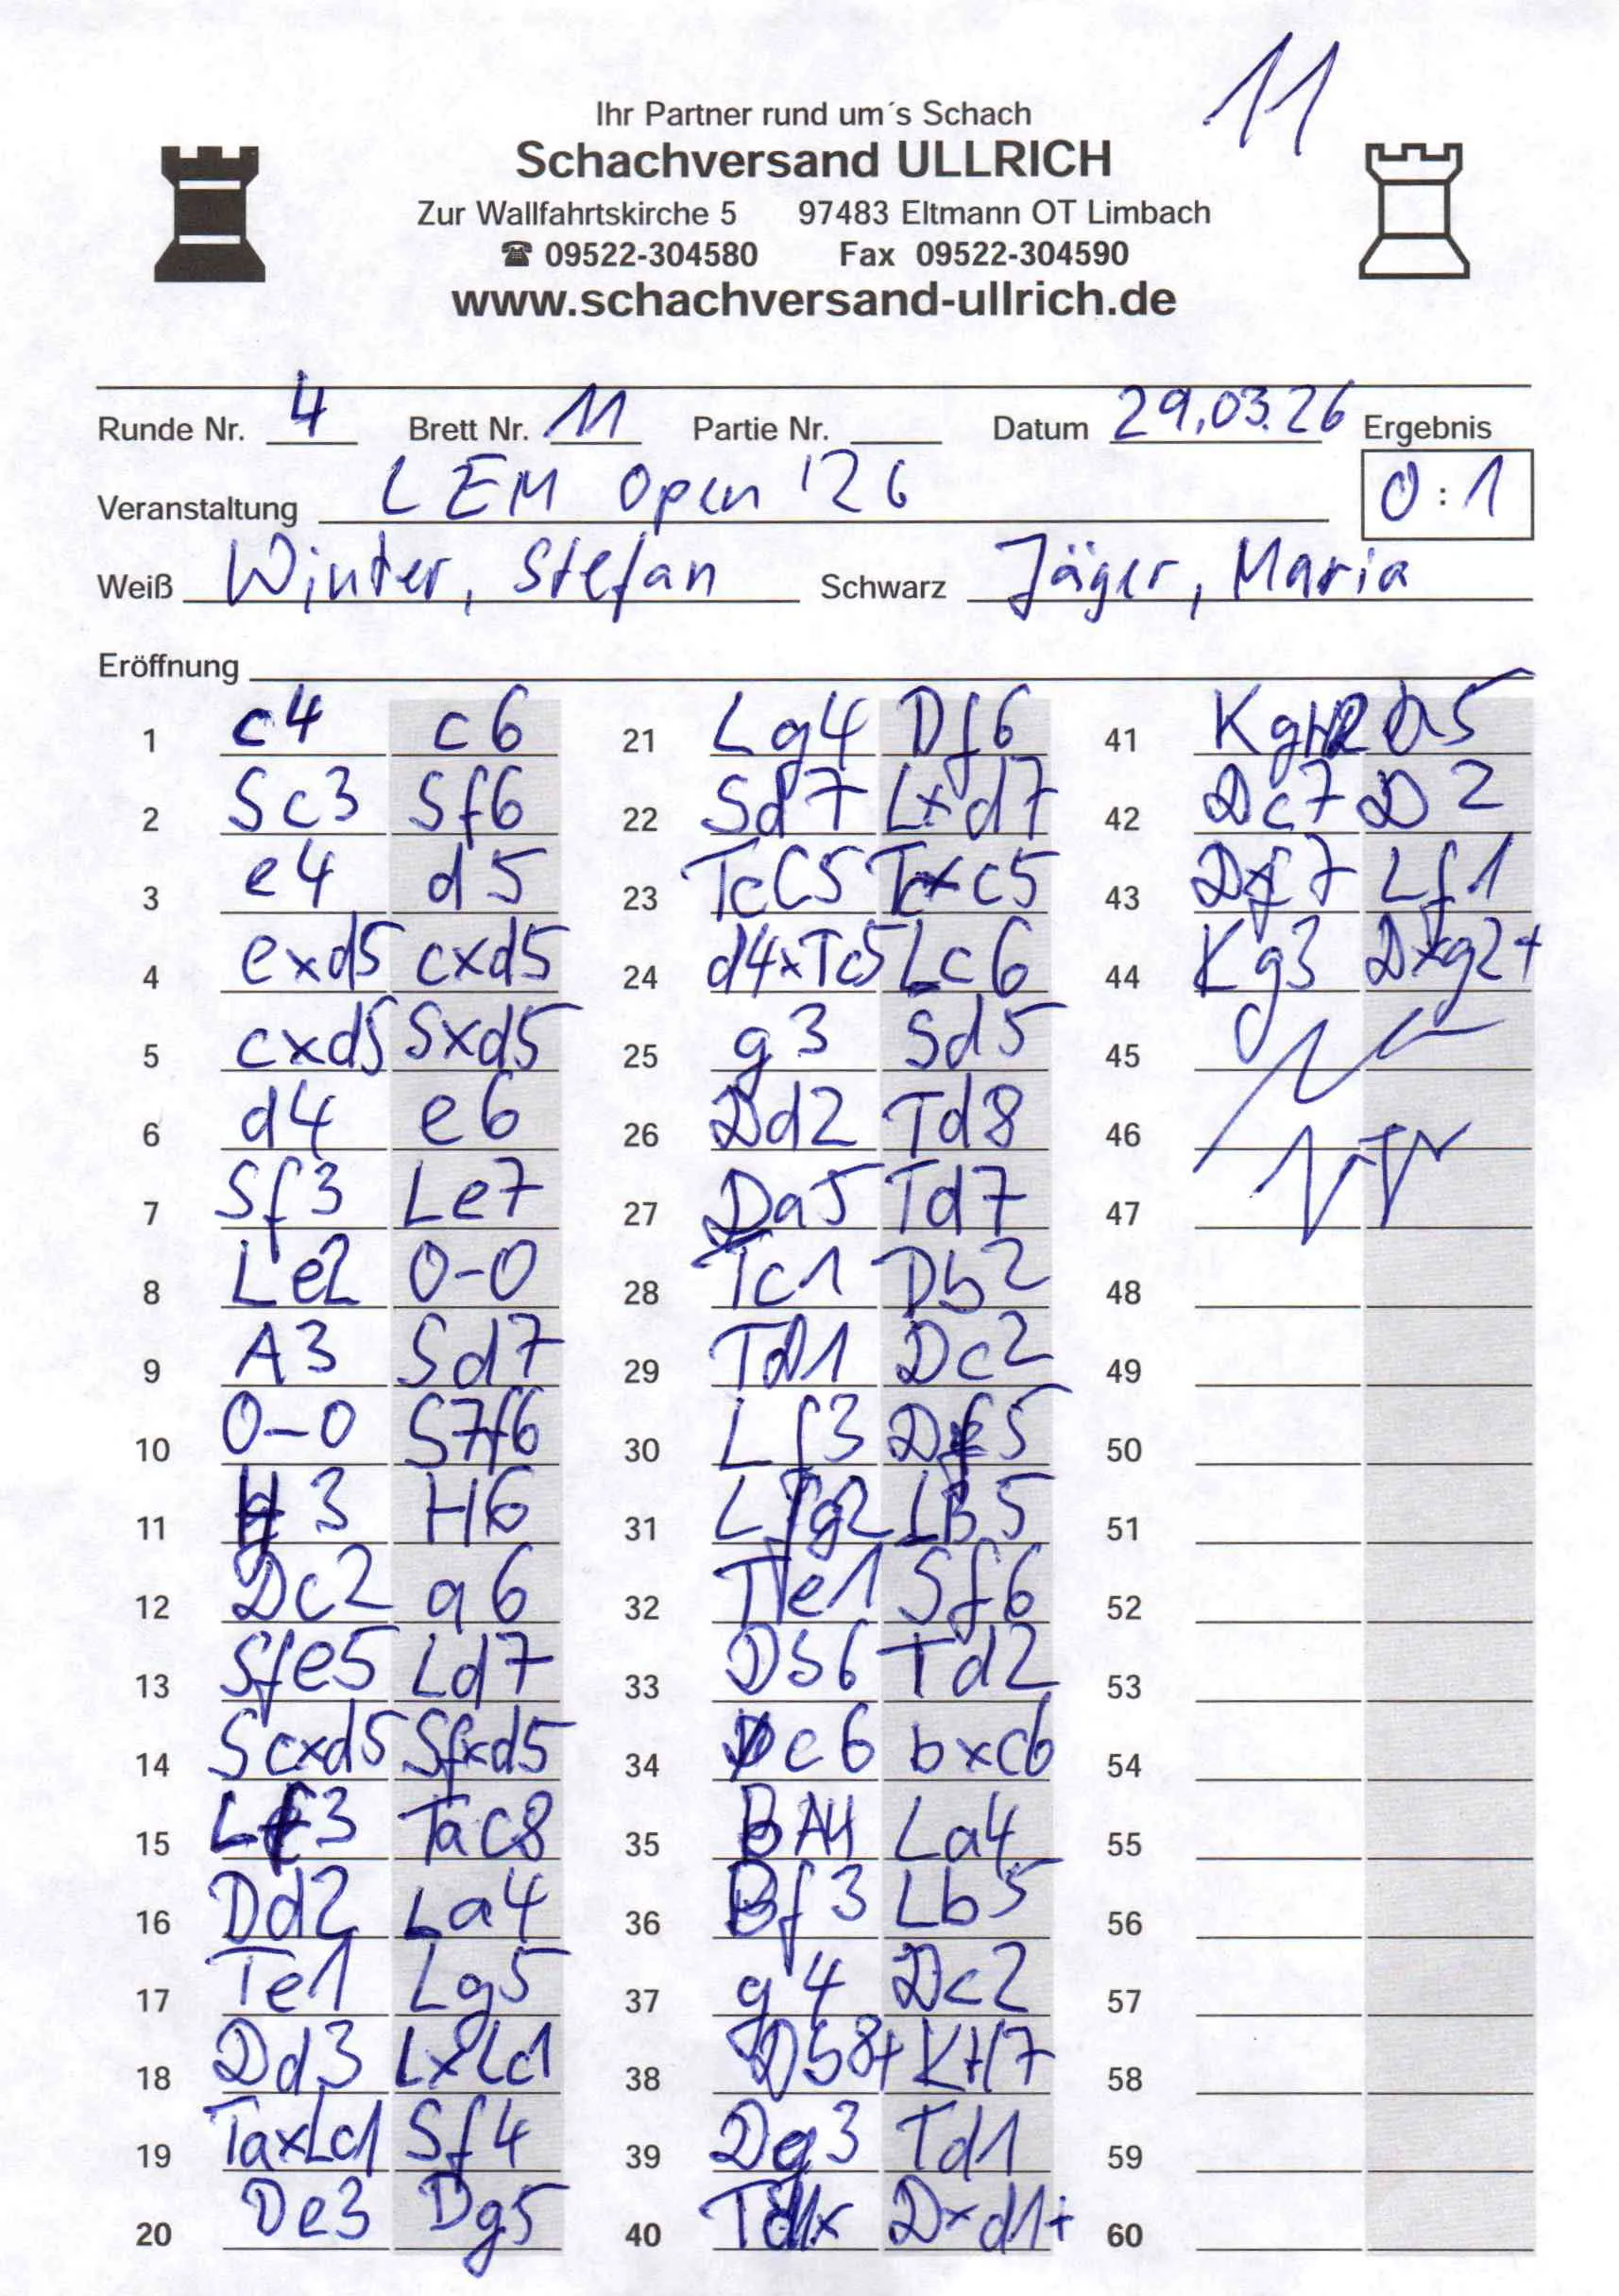 11
Ihr Partner rund um´s Schach
Schachversand ULLRICH
Zur Wallfahrtskirche 5 97483 Eltmann OT Limbach
☎ 09522-304580 Fax 09522-304590
www.schachversand-ullrich.de
Runde Nr. 4 Brett Nr. 11 Partie Nr. Datum 29.03.26 Ergebnis
Veranstaltung LEM Open '26 0:1
Weiß Winter, Stefan Schwarz Jäger, Maria
Eröffnung
1 c4 c6
2 Sc3 Sf6
3 e4 d5
4 exd5 cxd5
5 cxd5 Sxd5
6 d4 e6
7 Sf3 Le7
8 Le2 0-0
9 A3 Sd7
10 0-0 S7f6
11 H3 H6
12 Dc2 a6
13 Sfe5 Ld7
14 Scxd5 Sfxd5
15 Lf3 Tac8
16 Dd2 La4
17 Te1 Lg5
18 Dd3 LxLc1
19 TaxLc1 Sf4
20 De3 Dg5
21 Lg4 Df6
22 Sd7 Lxd7
23 TcC5 Tcxc5
24 d4xTc5 Lc6
25 g3 Sd5
26 Dd2 Td8
27 Da5 Td7
28 Tc1 Db2
29 Td1 Dc2
30 Lf3 Df5
31 Lg2 LB5
32 Te1 Sf6
33 Db6 Td2
34 c6 bxc6
35 BA4 La4
36 Bf3 Lb5
37 g4 Dc2
38 Db8+ KH7
39 Dg3 Td1
40 Td1x Dxd1+
41 KgH2 a5
42 Dc7 D 2
43 Dxf7 Lf1
44 Kg3 Dxg2+
45
46
47
48
49
50
51
52
53
54
55
56
57
58
59
60